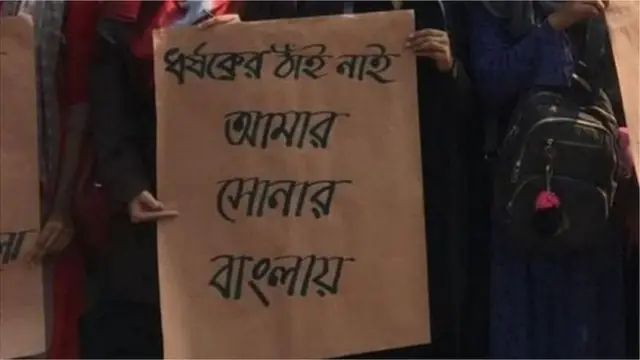 ধর্ষকের ঠাঁই নাই
আমার
সোনার
বাংলায়